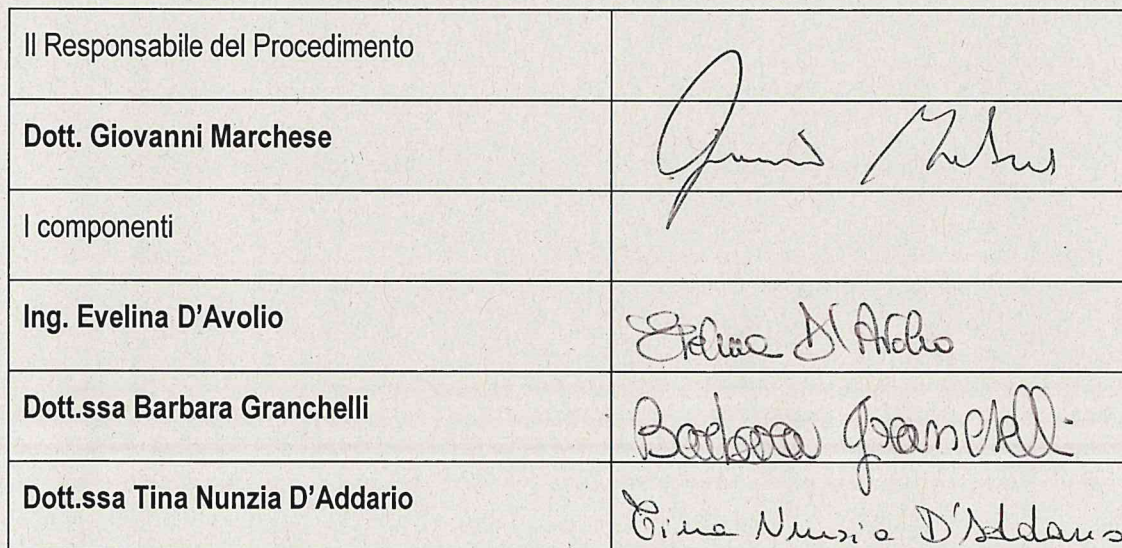 Il Responsabile del Procedimento
Dott. Giovanni Marchese
I componenti
Ing. Evelina D'Avolio
Evelina D'Avolio
Dott.ssa Barbara Granchelli
Barbara Granchelli
Dott.ssa Tina Nunzia D'Addario
Tina Nunzia D'Addario